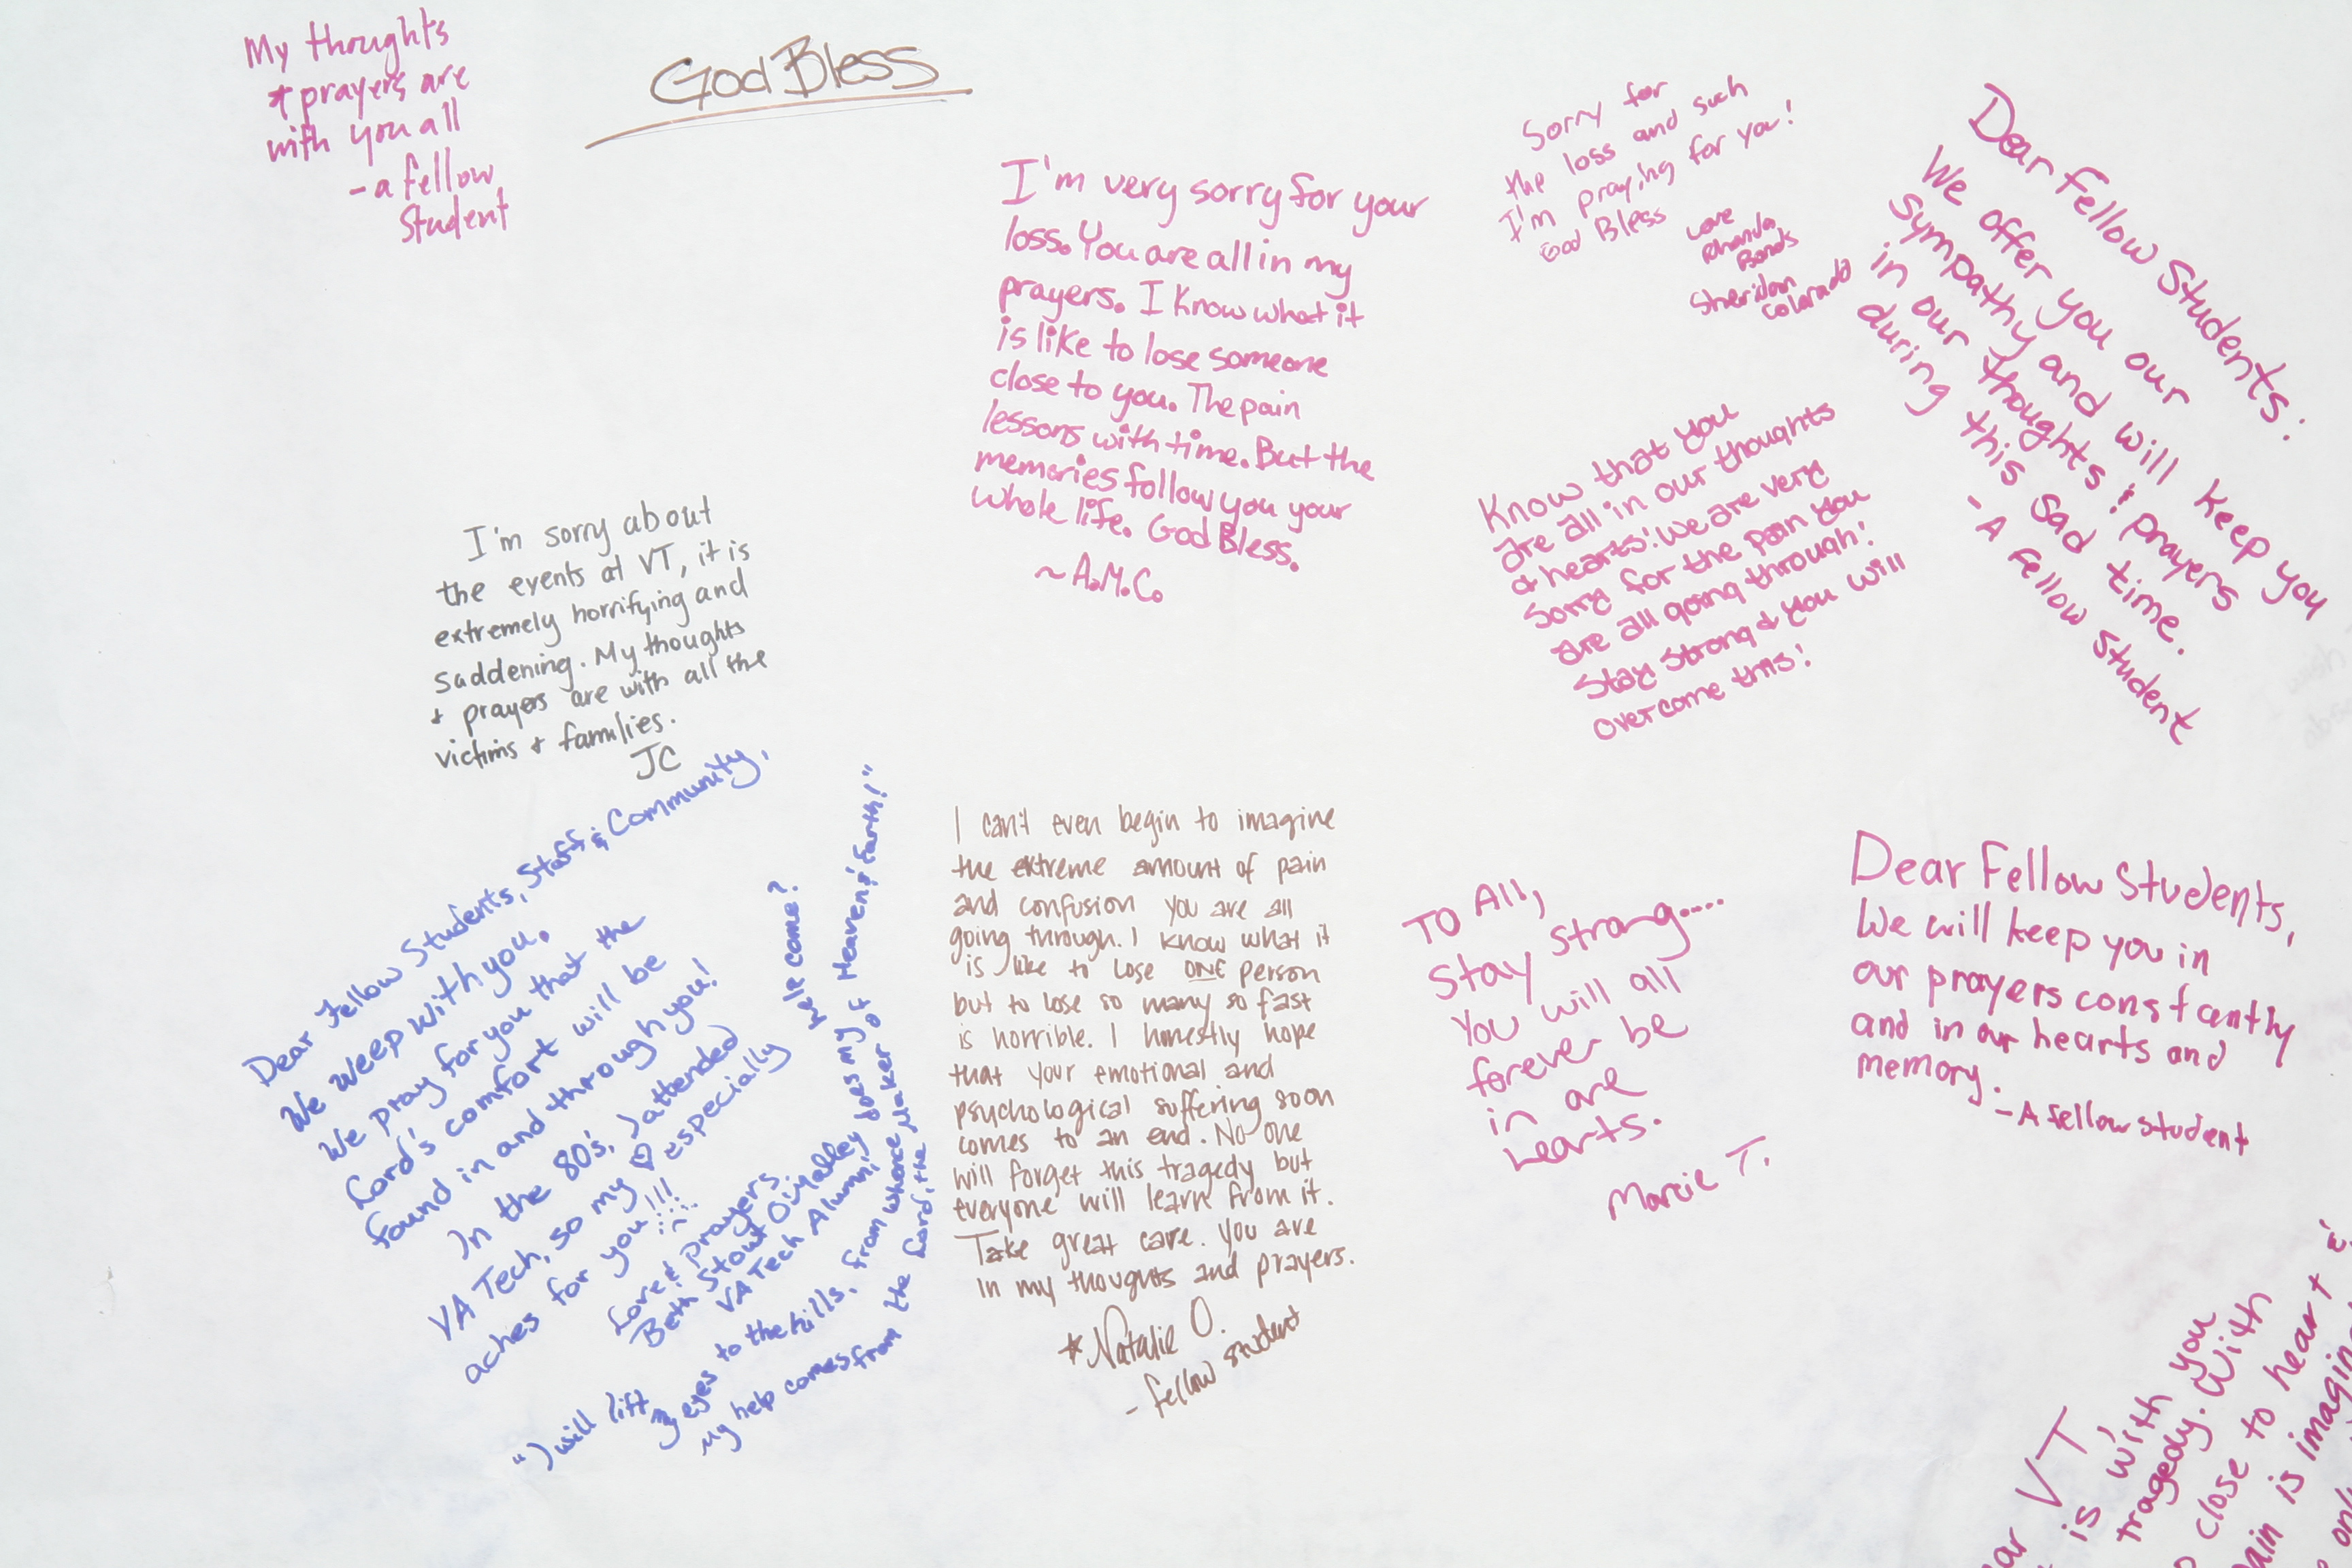 My thoughts
+ prayers are
with you all
- a fellow
Student
God Bless
I'm very sorry for your
loss. You are all in my
prayers. I know what it
is like to lose someone
close to you. The pain
lessons with time. But the
memories follow you your
whole life. God Bless.
~ A.M.C.
Sorry for
the loss and such
I'm praying for you!
God Bless
Love
Rhanda
Bonds
Sheridan
Colorado
Dear Fellow Students:
We offer you our
Sympathy and will keep you
in our thoughts & prayers
during this sad time.
- A Fellow Student
Know that you
are all in our thoughts
& hearts! We are very
sorry for the pain you
are all going through!
Stay strong & you will
overcome this!
I'm sorry about
the events at VT, it is
extremely horrifying and
saddening. My thoughts
+ prayers are with all the
victims + families.
JC
Dear Fellow Students, Staff & Community,
We weep with you.
We pray for you that the
Lord's comfort will be
found in and through you!
In the 80's, I attended
VA Tech, so my ♡ especially
aches for you!!!
Love & prayers,
Beth Stout O'malley
VA Tech Alumni
"I will lift my eyes to the hills, from whence does my help come?
My help comes from the Lord, the Maker of Heaven & Earth!"
I can't even begin to imagine
the extreme amount of pain
and confusion you are all
going through. I know what it
is like to lose ONE person
but to lose so many so fast
is horrible. I honestly hope
that your emotional and
psychological suffering soon
comes to an end. No one
will forget this tragedy but
everyone will learn from it.
Take great care. You are
in my thoughts and prayers.
*Natalie O.
- fellow student
To All,
Stay strong....
You will all
forever be
in are
hearts.
Marcie T.
Dear Fellow Students,
We will keep you in
our prayers constantly
and in our hearts and
memory.
- A fellow student
VT,
is with you
tragedy. With
close to heart &
is imagin